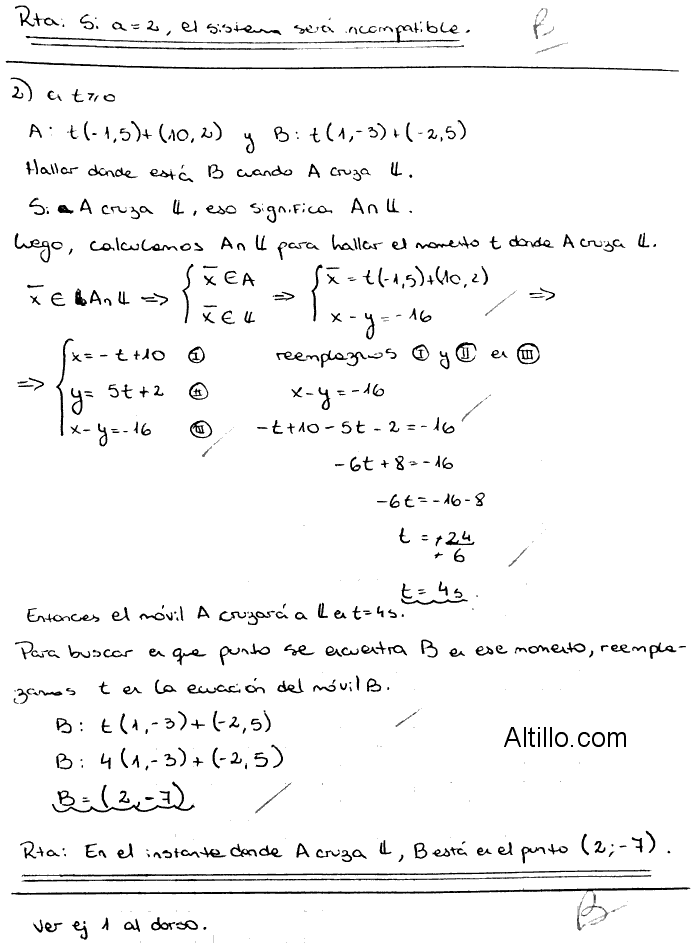 Rta: Si a=2, el sistema será incompatible. B
2) en t=0
A: t(-1,5)+(10,2) y B: t(1,-3)+(-2,5)
Hallar donde está B cuando A cruza 𝕃.
Si A cruza 𝕃, eso significa A∩𝕃.
Luego, calculamos A∩𝕃 para hallar el momento t donde A cruza 𝕃.
x̄ ∈ A∩𝕃 ⇒ { x̄ ∈ A ; x̄ ∈ 𝕃 ⇒ { x̄ = t(-1,5)+(10,2) ; x-y=-16 ⇒
⇒ { x=-t+10 Ⓘ reemplazamos Ⓘ y Ⓘ Ⓘ en Ⓘ Ⓘ Ⓘ
y= 5t+2 II x-y=-16
x-y=-16 III -t+10-5t-2=-16
-6t+8=-16
-6t=-16-8
t = +24/+6
t= 4s.
Entonces el móvil A cruzará a 𝕃 en t=4s.
Para buscar en que punto se encuentra B en ese momento, reempla-
zamos t en la ecuación del móvil B.
B: t(1,-3)+(-2,5)
Altillo.com
B: 4(1,-3)+(-2,5)
B=(2,-7)
Rta: En el instante donde A cruza 𝕃, B está en el punto (2;-7).
B
Ver ej 1 al dorso.